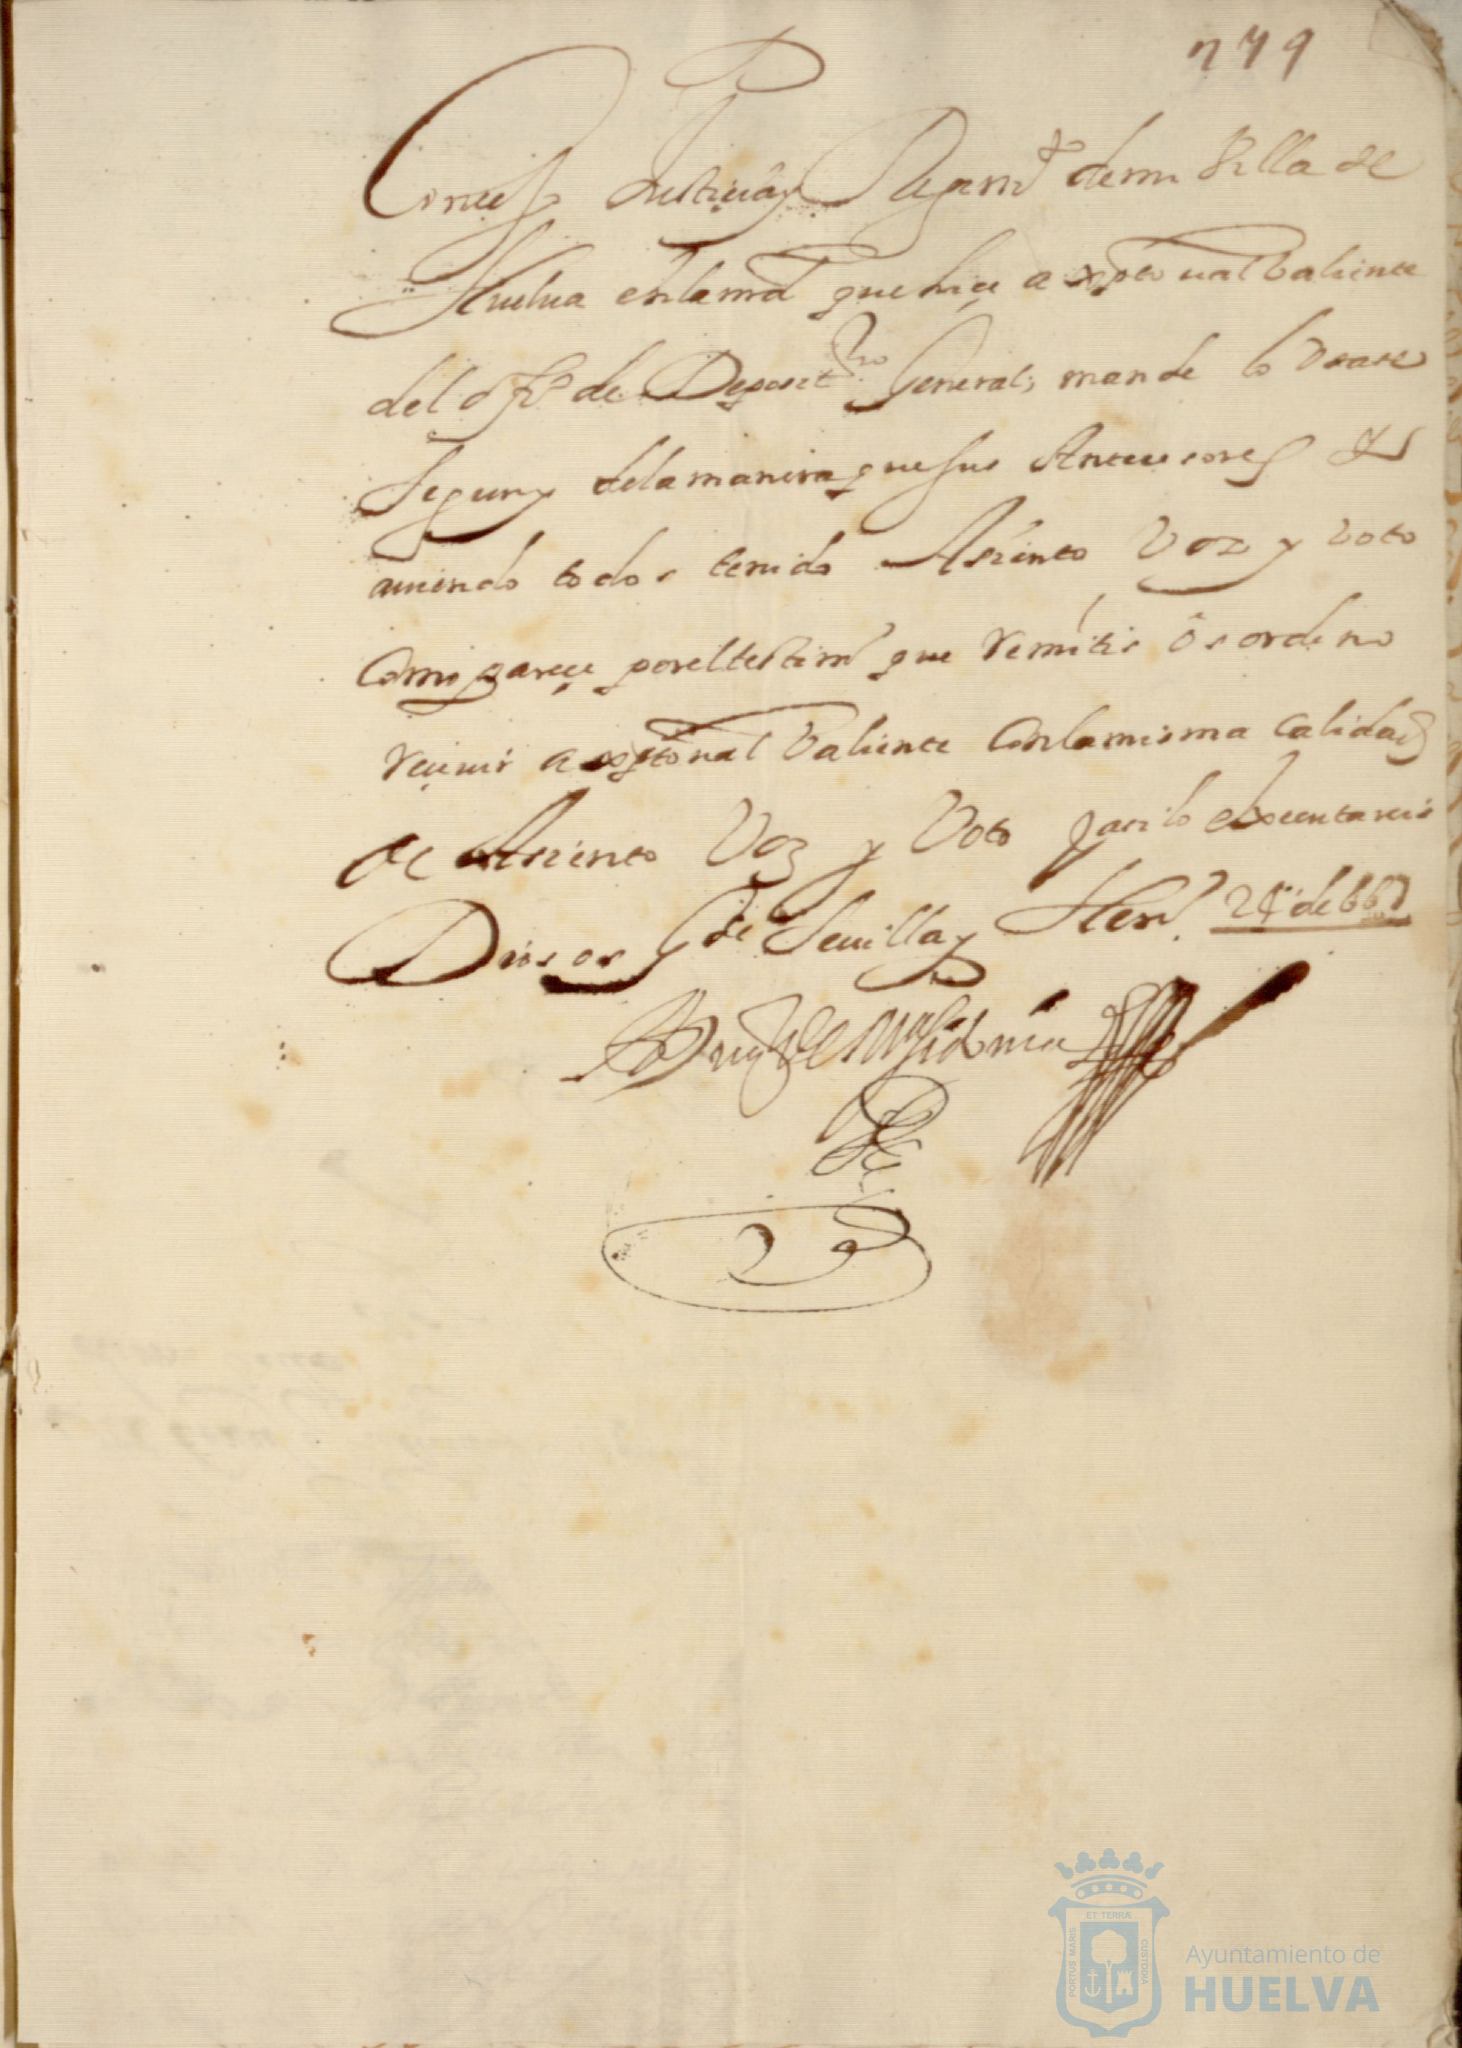 279
Conçejo Justiçia y Regimto de mi Villa de
Huelua en la md que hiçe a xptoual Valiente
del offo de Depositrio General; mande lo Vsase
segun y de la manera que sus Anteçesores &
auiendo todos tenido Asiento Voz y Voto
Como pareçe por el testimo que remitis ôs ordeno
reçiuir a xptoual Valiente Con la misma Calidad
de Asiento Voz y Voto y asi lo executareis
Dios os gde Seuilla y Hen. 24 de 66
El Duq de Mdina Sidonia
ET TERRÆ
PORTUS MARIS
CUSTODIA
Ayuntamiento de
HUELVA